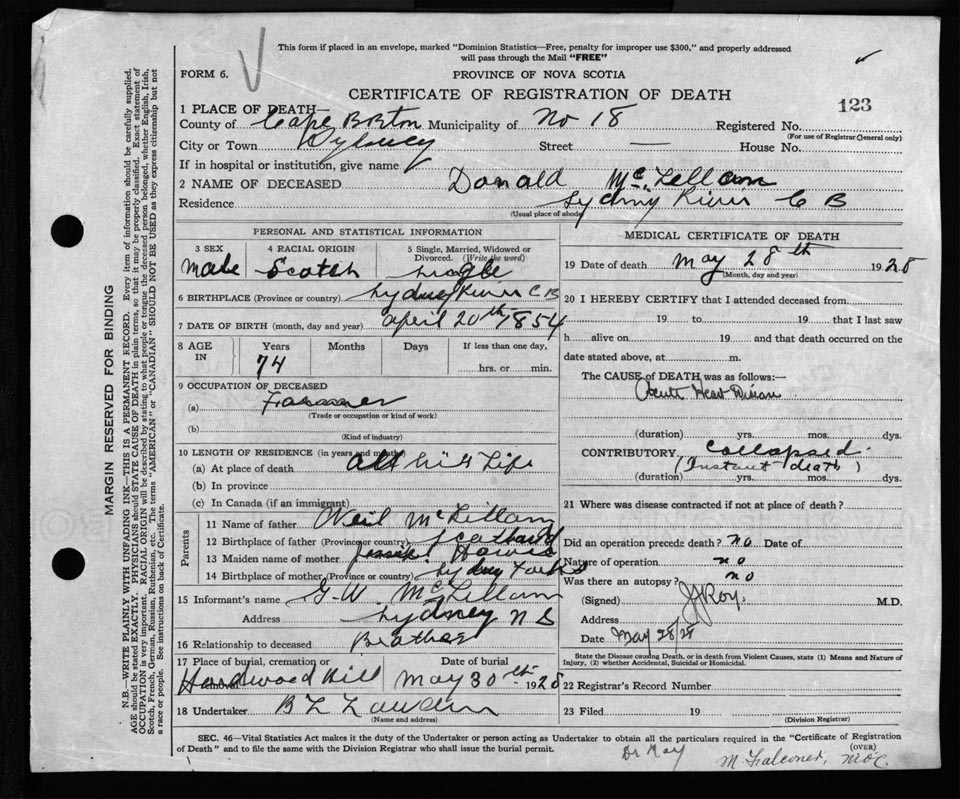 This form if placed in an envelope, marked "Dominion Statistics—Free, penalty for improper use $300," and properly addressed
will pass through the Mail "FREE"
FORM 6.
PROVINCE OF NOVA SCOTIA
CERTIFICATE OF REGISTRATION OF DEATH
123
1 PLACE OF DEATH—
County of Cape BRton Municipality of No 18 Registered No.
(For use of Registrar General only)
City or Town Sydney Street — House No.
If in hospital or institution, give name
2 NAME OF DECEASED Donald McLellam
Residence Sydney River C B
(Usual place of abode)
PERSONAL AND STATISTICAL INFORMATION
3 SEX 4 RACIAL ORIGIN 5 Single, Married, Widowed or
Divorced. (Write the word)
male Scotch single
6 BIRTHPLACE (Province or country) Sydney River C B
7 DATE OF BIRTH (month, day and year) april 20th 1854
8 AGE IN Years Months Days If less than one day,
74 hrs. or min.
9 OCCUPATION OF DECEASED
(a) Farmer
(Trade or occupation or kind of work)
(b)
(Kind of industry)
10 LENGTH OF RESIDENCE (in years and months)
(a) At place of death all his Life
(b) In province
(c) In Canada (if an immigrant)
Parents
11 Name of father Neil McLellam
12 Birthplace of father (Province or country) Scotland
13 Maiden name of mother
14 Birthplace of mother (Province or country) Sydney Forks
15 Informant's name G. W McLellam
Address Sydney N S
16 Relationship to deceased Brother
17 Place of burial, cremation or removal Date of burial
Hardwood Hill May 30th 1928
18 Undertaker B L
(Name and address)
MEDICAL CERTIFICATE OF DEATH
19 Date of death May 28th 1928
(Month, day and year)
20 I HEREBY CERTIFY that I attended deceased from
19 to 19 that I last saw
h alive on 19 and that death occurred on the
date stated above, at m.
The CAUSE of DEATH was as follows:—
Acute Heart Disease
(duration) yrs. mos. dys.
CONTRIBUTORY Collapsed
(Instant death)
(duration) yrs. mos. dys.
21 Where was disease contracted if not at place of death?
Did an operation precede death? no Date of
Nature of operation no
Was there an autopsy? no
(Signed) Roy. M.D.
Address
Date May 28/28
State the Disease causing Death, or in death from Violent Causes, state (1) Means and Nature of
Injury, (2) whether Accidental, Suicidal or Homicidal.
22 Registrar's Record Number
23 Filed 19
(Division Registrar)
SEC. 46—Vital Statistics Act makes it the duty of the Undertaker or person acting as Undertaker to obtain all the particulars required in the "Certificate of Registration
of Death" and to file the same with the Division Registrar who shall issue the burial permit.
(OVER)
Dr Roy
M. Falconer, M.O.C.
MARGIN RESERVED FOR BINDING
N.B.—WRITE PLAINLY WITH UNFADING INK—THIS IS A PERMANENT RECORD. Every item of information should be carefully supplied.
AGE should be stated EXACTLY. PHYSICIANS should STATE CAUSE OF DEATH in plain terms, so that it may be properly classified. Exact statement of
OCCUPATION is very important. RACIAL ORIGIN will be described by stating to what people or tongue the deceased person belonged, whether English, Irish,
Scotch, French, German, Russian, Ruthenian, etc. The terms "AMERICAN" or "CANADIAN" SHOULD NOT BE USED as they express citizenship but not
a race or people. See instructions on back of Certificate.